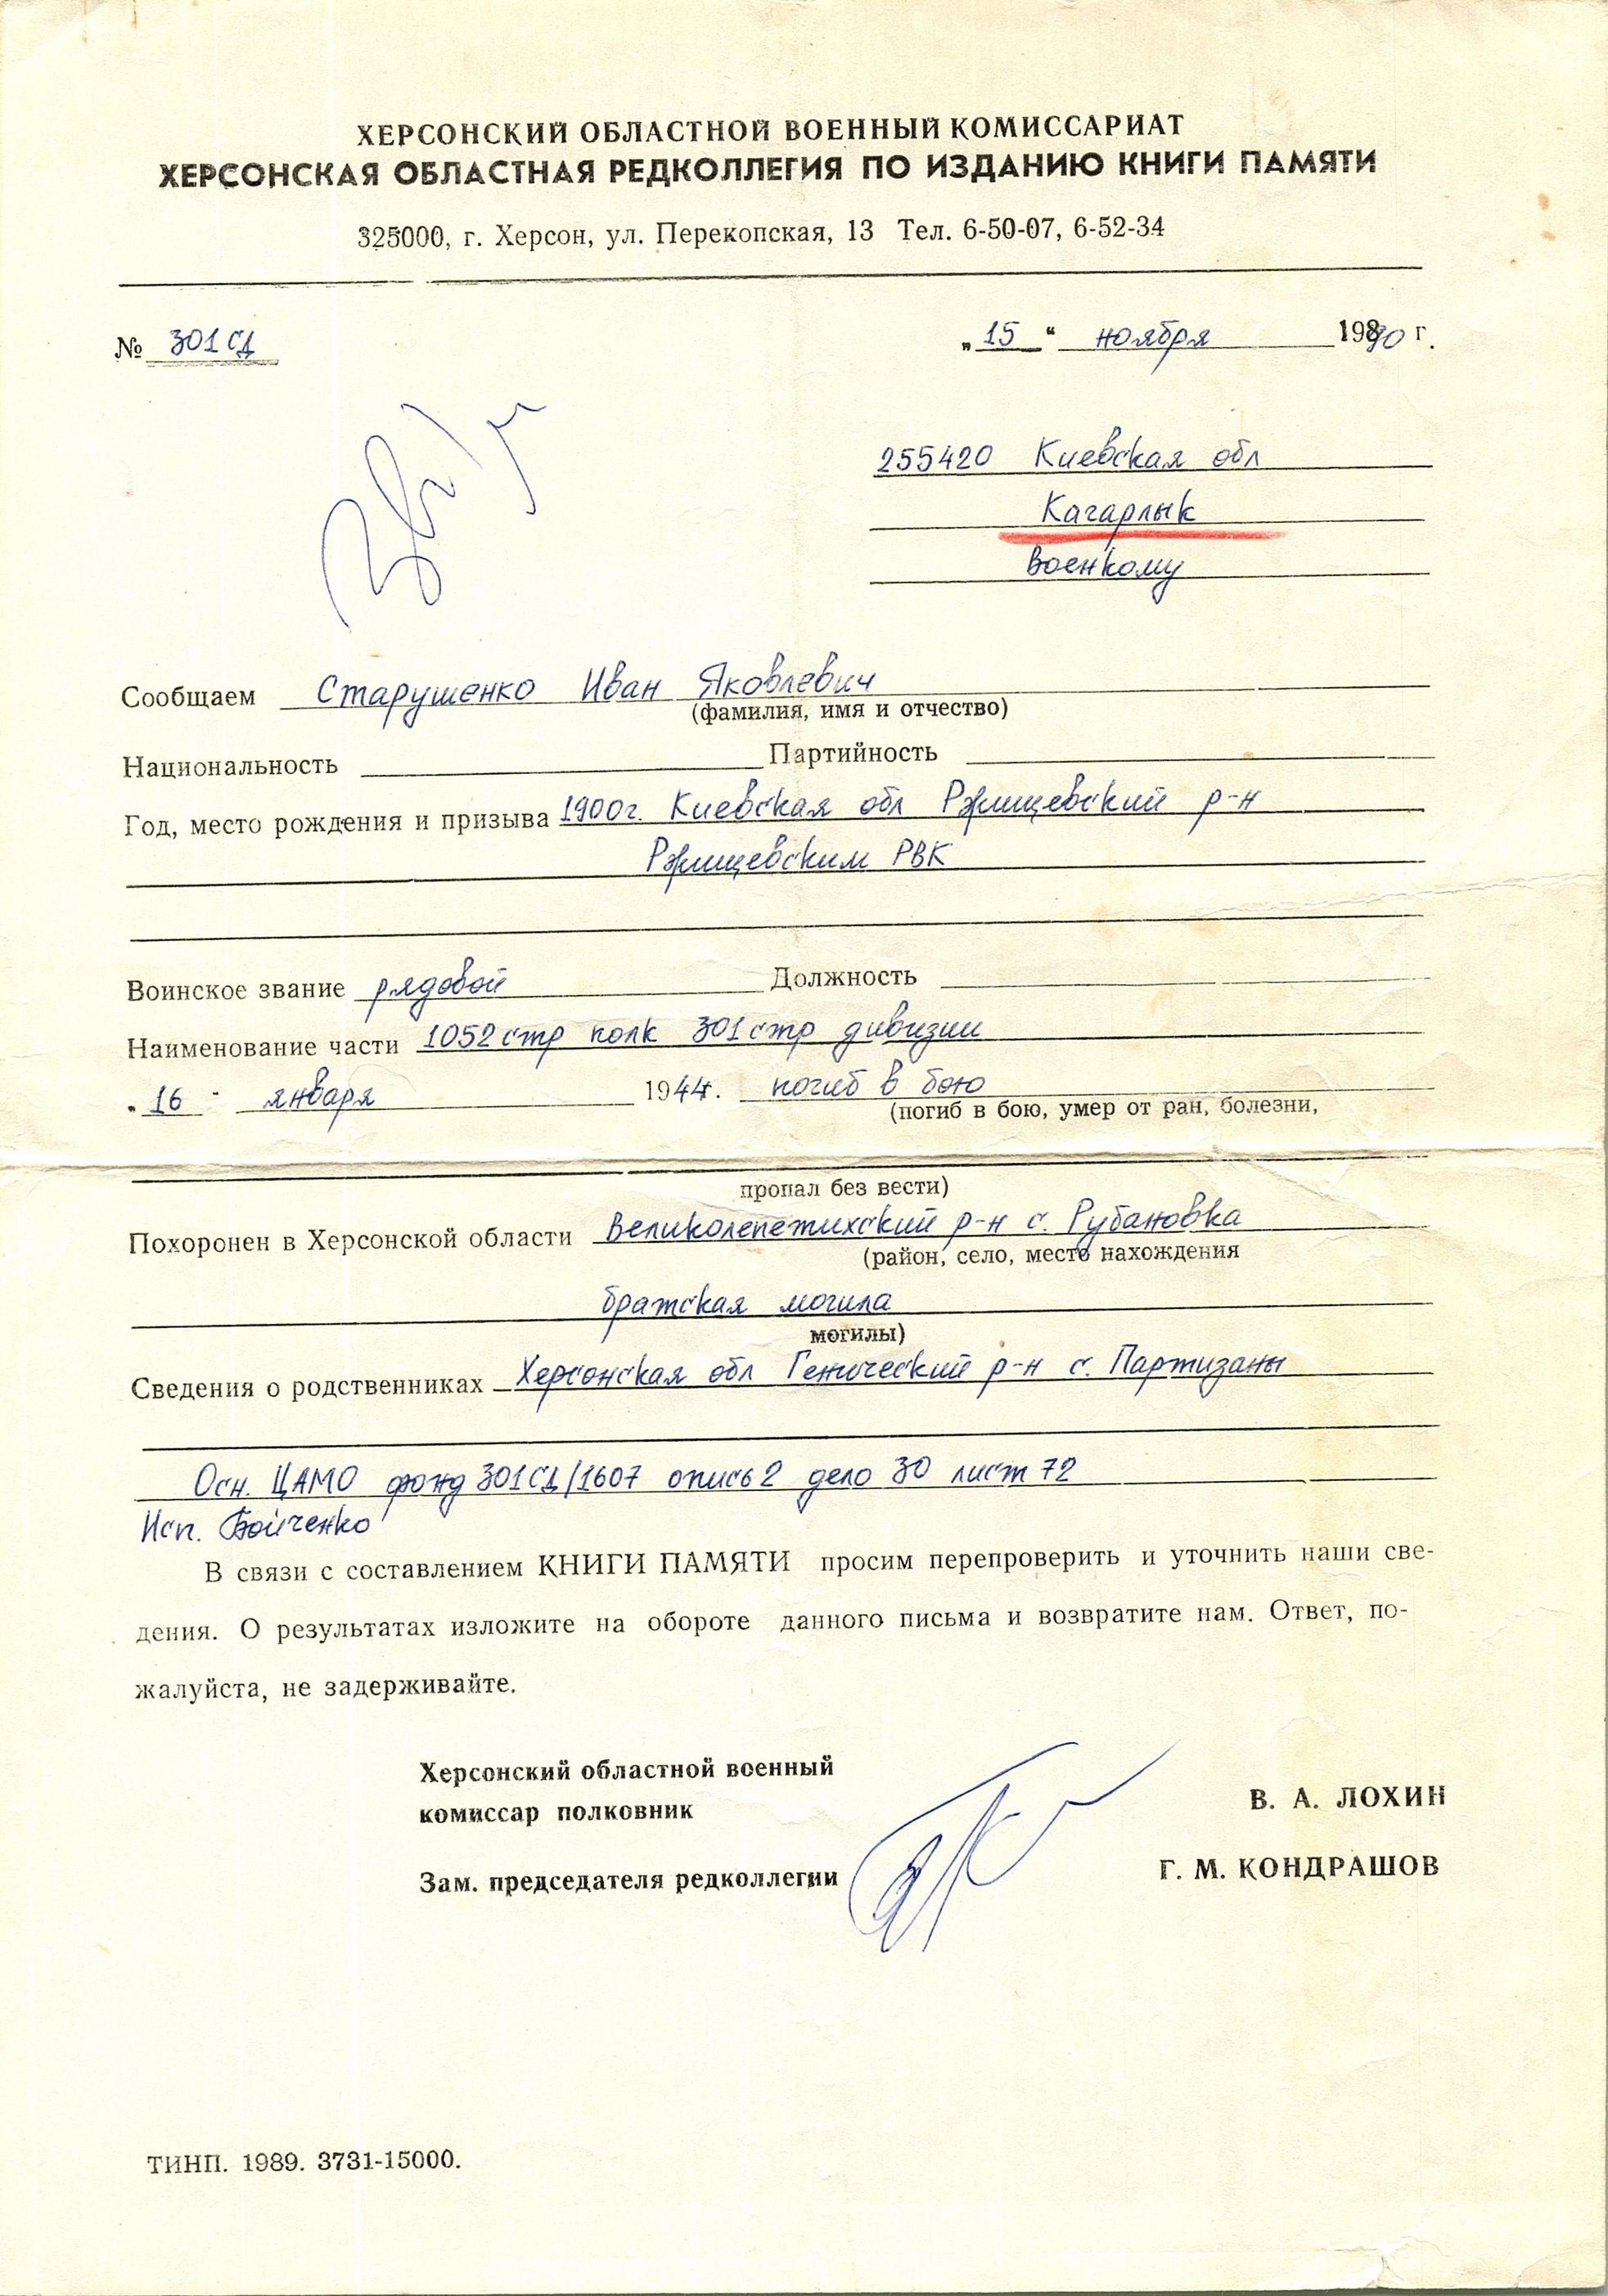 ХЕРСОНСКИЙ ОБЛАСТНОЙ ВОЕННЫЙ КОМИССАРИАТ
ХЕРСОНСКАЯ ОБЛАСТНАЯ РЕДКОЛЛЕГИЯ ПО ИЗДАНИЮ КНИГИ ПАМЯТИ
325000, г. Херсон, ул. Перекопская, 13 Тел. 6-50-07, 6-52-34
№ 301 СД „15“ ноября 1990 г.
255420 Киевская обл
Кагарлык
Военкому
Сообщаем Старушенко Иван Яковлевич
(фамилия, имя и отчество)
Национальность Партийность
Год, место рождения и призыва 1900г. Киевская обл Ржищевский р-н
Ржищевским РВК
Воинское звание рядовой Должность
Наименование части 1052 стр полк 301 стр дивизии
„16" января 1944. погиб в бою
(погиб в бою, умер от ран, болезни,
пропал без вести)
Похоронен в Херсонской области Великолепетихский р-н с. Рубановка
(район, село, место нахождения
братская могила
могилы)
Сведения о родственниках Херсонская обл Генический р-н с. Партизаны
Осн. ЦАМО фонд 301СД/1607 опись 2 дело 30 лист 72
Исп. Бойченко
В связи с составлением КНИГИ ПАМЯТИ просим перепроверить и уточнить наши све-
дения. О результатах изложите на обороте данного письма и возвратите нам. Ответ, по-
жалуйста, не задерживайте.
Херсонский областной военный
комиссар полковник В. А. ЛОХИН
Зам. председателя редколлегии Г. М. КОНДРАШОВ
ТИНП. 1989. 3731-15000.